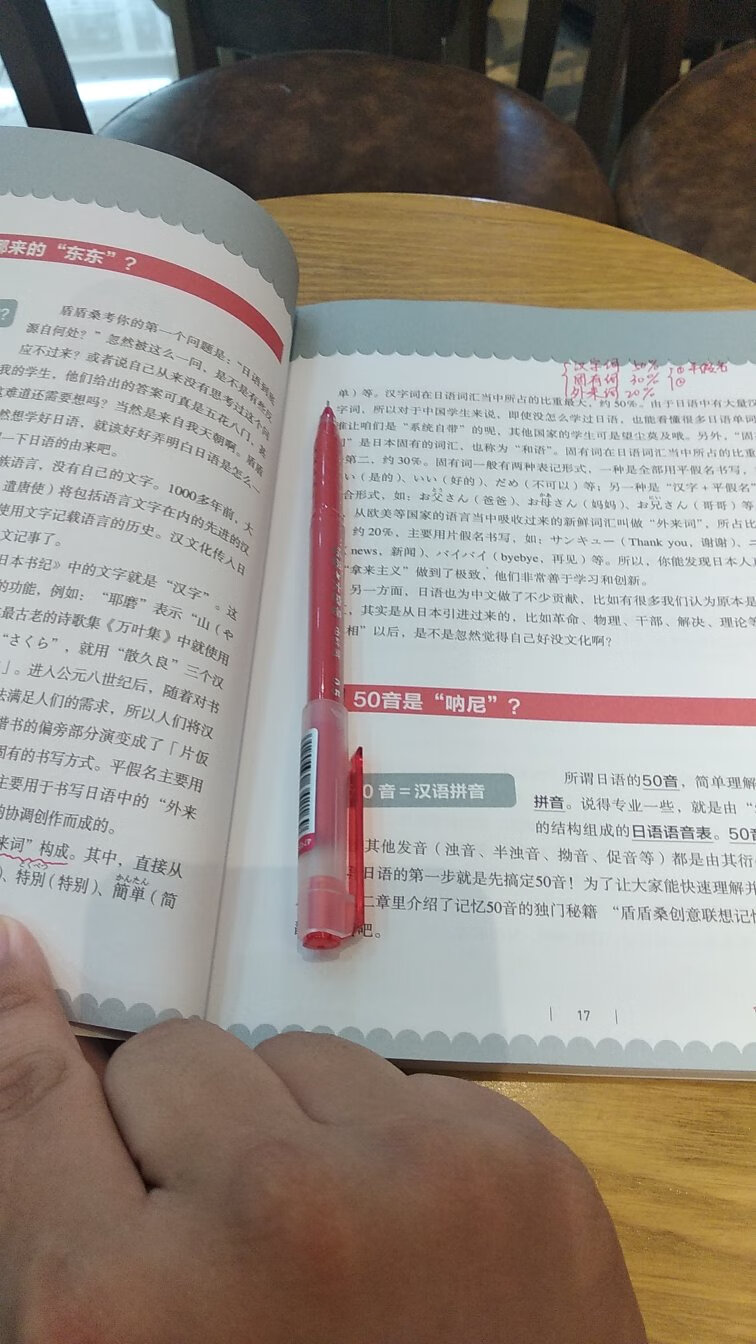 来的“东东”？
盾盾桑考你的第一个问题是：“日语到底
源自何处？”忽然被这么一问，是不是有些反
应不过来？或者说自己从来没有思考过这个问
我的学生，他们给出的答案可真是五花八门，甚
难道还需要想吗？当然是来自我天朝啊。盾盾
然想学好日语，就该好好弄明白日语是怎么一
一下日语的由来吧。
族语言，没有自己的文字。1000多年前，大
遣唐使）将包括语言文字在内的先进的汉
使用文字记载语言的历史。汉文化传入日
文记事了。
日本书纪》中的文字就是“汉字”。这
的功能，例如：“耶磨”表示“山（や
最古老的诗歌集《万叶集》中就使用
“さくら”，就用“散久良”三个汉
」。进入公元八世纪后，随着对书
法满足人们的需求，所以人们将汉
楷书的偏旁部分演变成了「片仮
固有的书写方式。平假名主要用
主要用于书写日语中的“外来
协调创作而成的。
来词”构成。其中，直接从
、特別（特别）、簡単（简
かんたん
汉字词 50%
固有词 30%
外来词 20%
①
②
单）等。汉字词在日语词汇当中所占的比重最大，约50%。由于日语中有大量汉
字词，所以对于中国学生来说，即使没怎么学过日语，也能看懂很多日语单词
谁让咱们是“系统自带”的呢，其他国家的学生可是望尘莫及哦。另外，“固
”是日本固有的词汇，也称为“和语”。固有词在日语词汇当中所占的比重
第二，约30%。固有词一般有两种表记形式，一种是全部用平假名书写，
い（是的）、いい（好的）、だめ（不可以）等；另一种是“汉字＋平假名”
合形式，如：お父さん（爸爸）、お母さん（妈妈）、お兄さん（哥哥）等
从欧美等国家的语言当中吸收过来的新鲜词汇叫做“外来词”，所占比
约20%，主要用片假名书写，如：サンキュー（Thank you，谢谢）、ニ
（news，新闻）、バイバイ（byebye，再见）等。所以，你能发现日本人
“拿来主义”做到了极致，他们非常善于学习和创新。
另一方面，日语也为中文做了不少贡献，比如有很多我们认为原本是
，其实是从日本引进过来的，比如革命、物理、干部、解决、理论等
相”以后，是不是忽然觉得自己好没文化啊？
50音是“呐尼”？
0 音＝汉语拼音
所谓日语的50音，简单理解
拼音。说得专业一些，就是由“
的结构组成的日语语音表。50音
其他发音（浊音、半浊音、拗音、促音等）都是由其衍
日语的第一步就是先搞定50音！为了让大家能快速理解并
二章里介绍了记忆50音的独门秘籍 “盾盾桑创意联想记忆
吧。
17